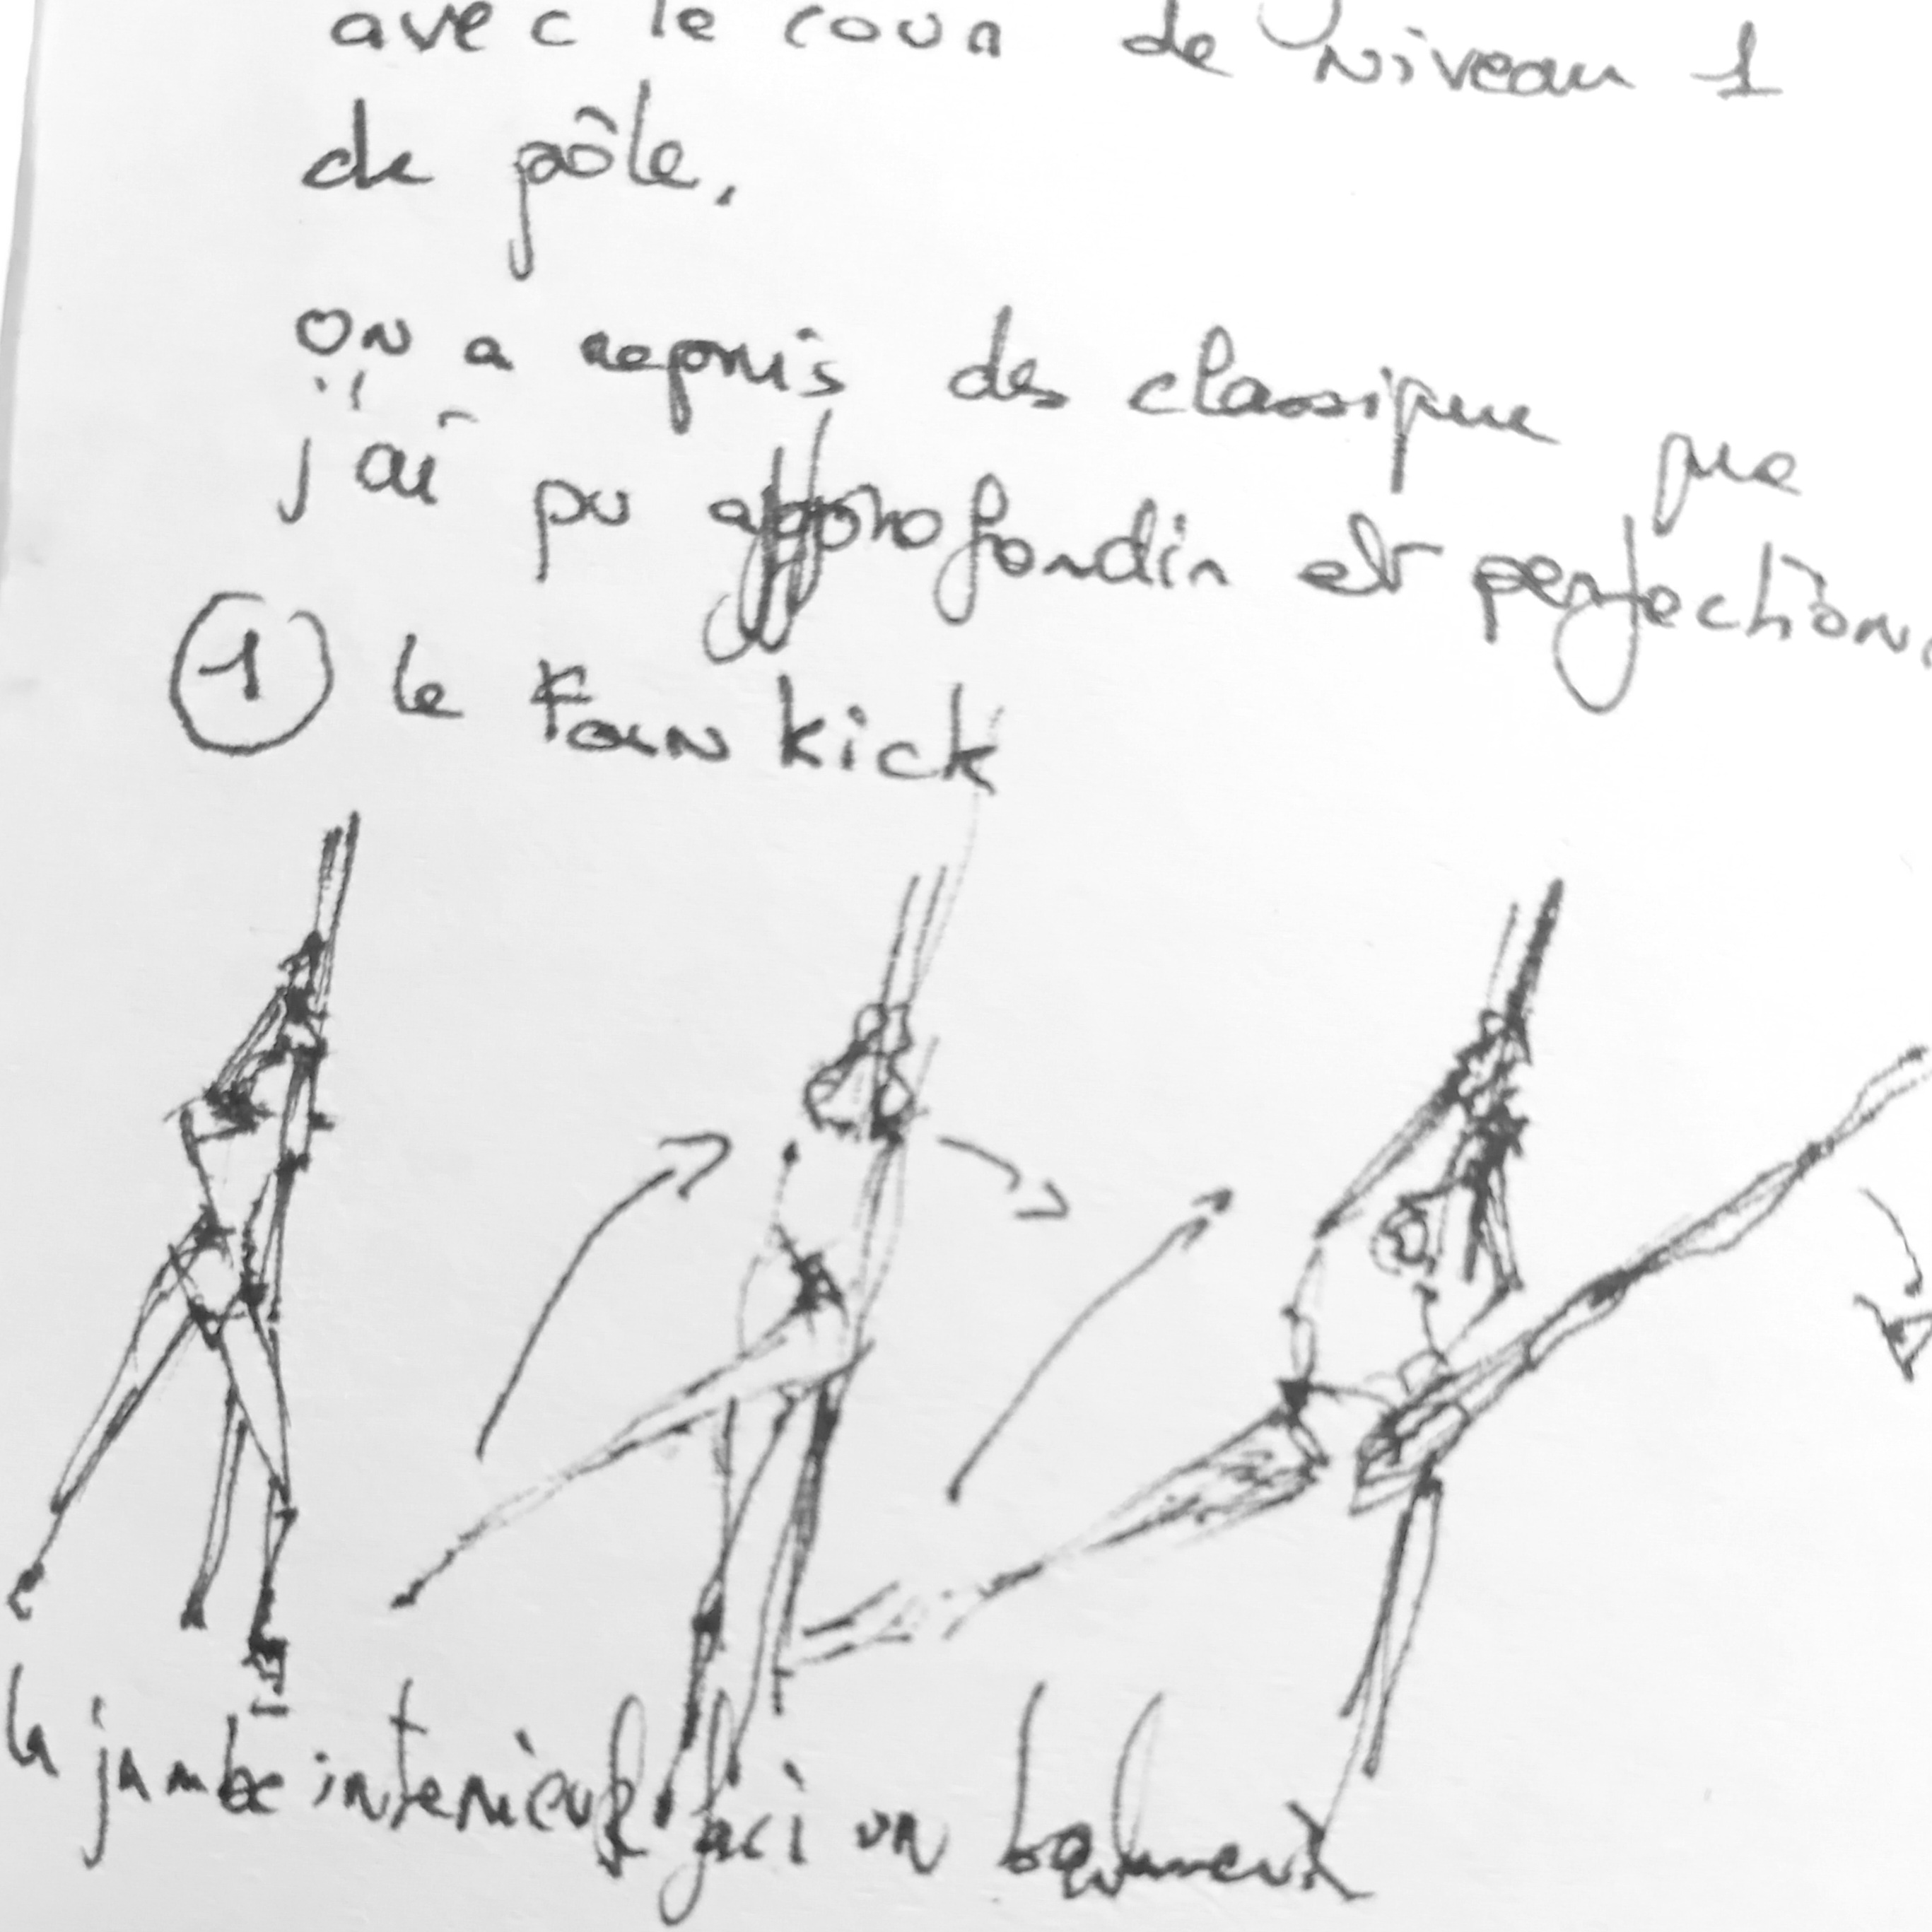 avec le cour de Niveau 1
de pôle.
ON a repris des classique que
j'ai pu approfondir et perfection
1 le Fan kick
la jambe interieur un